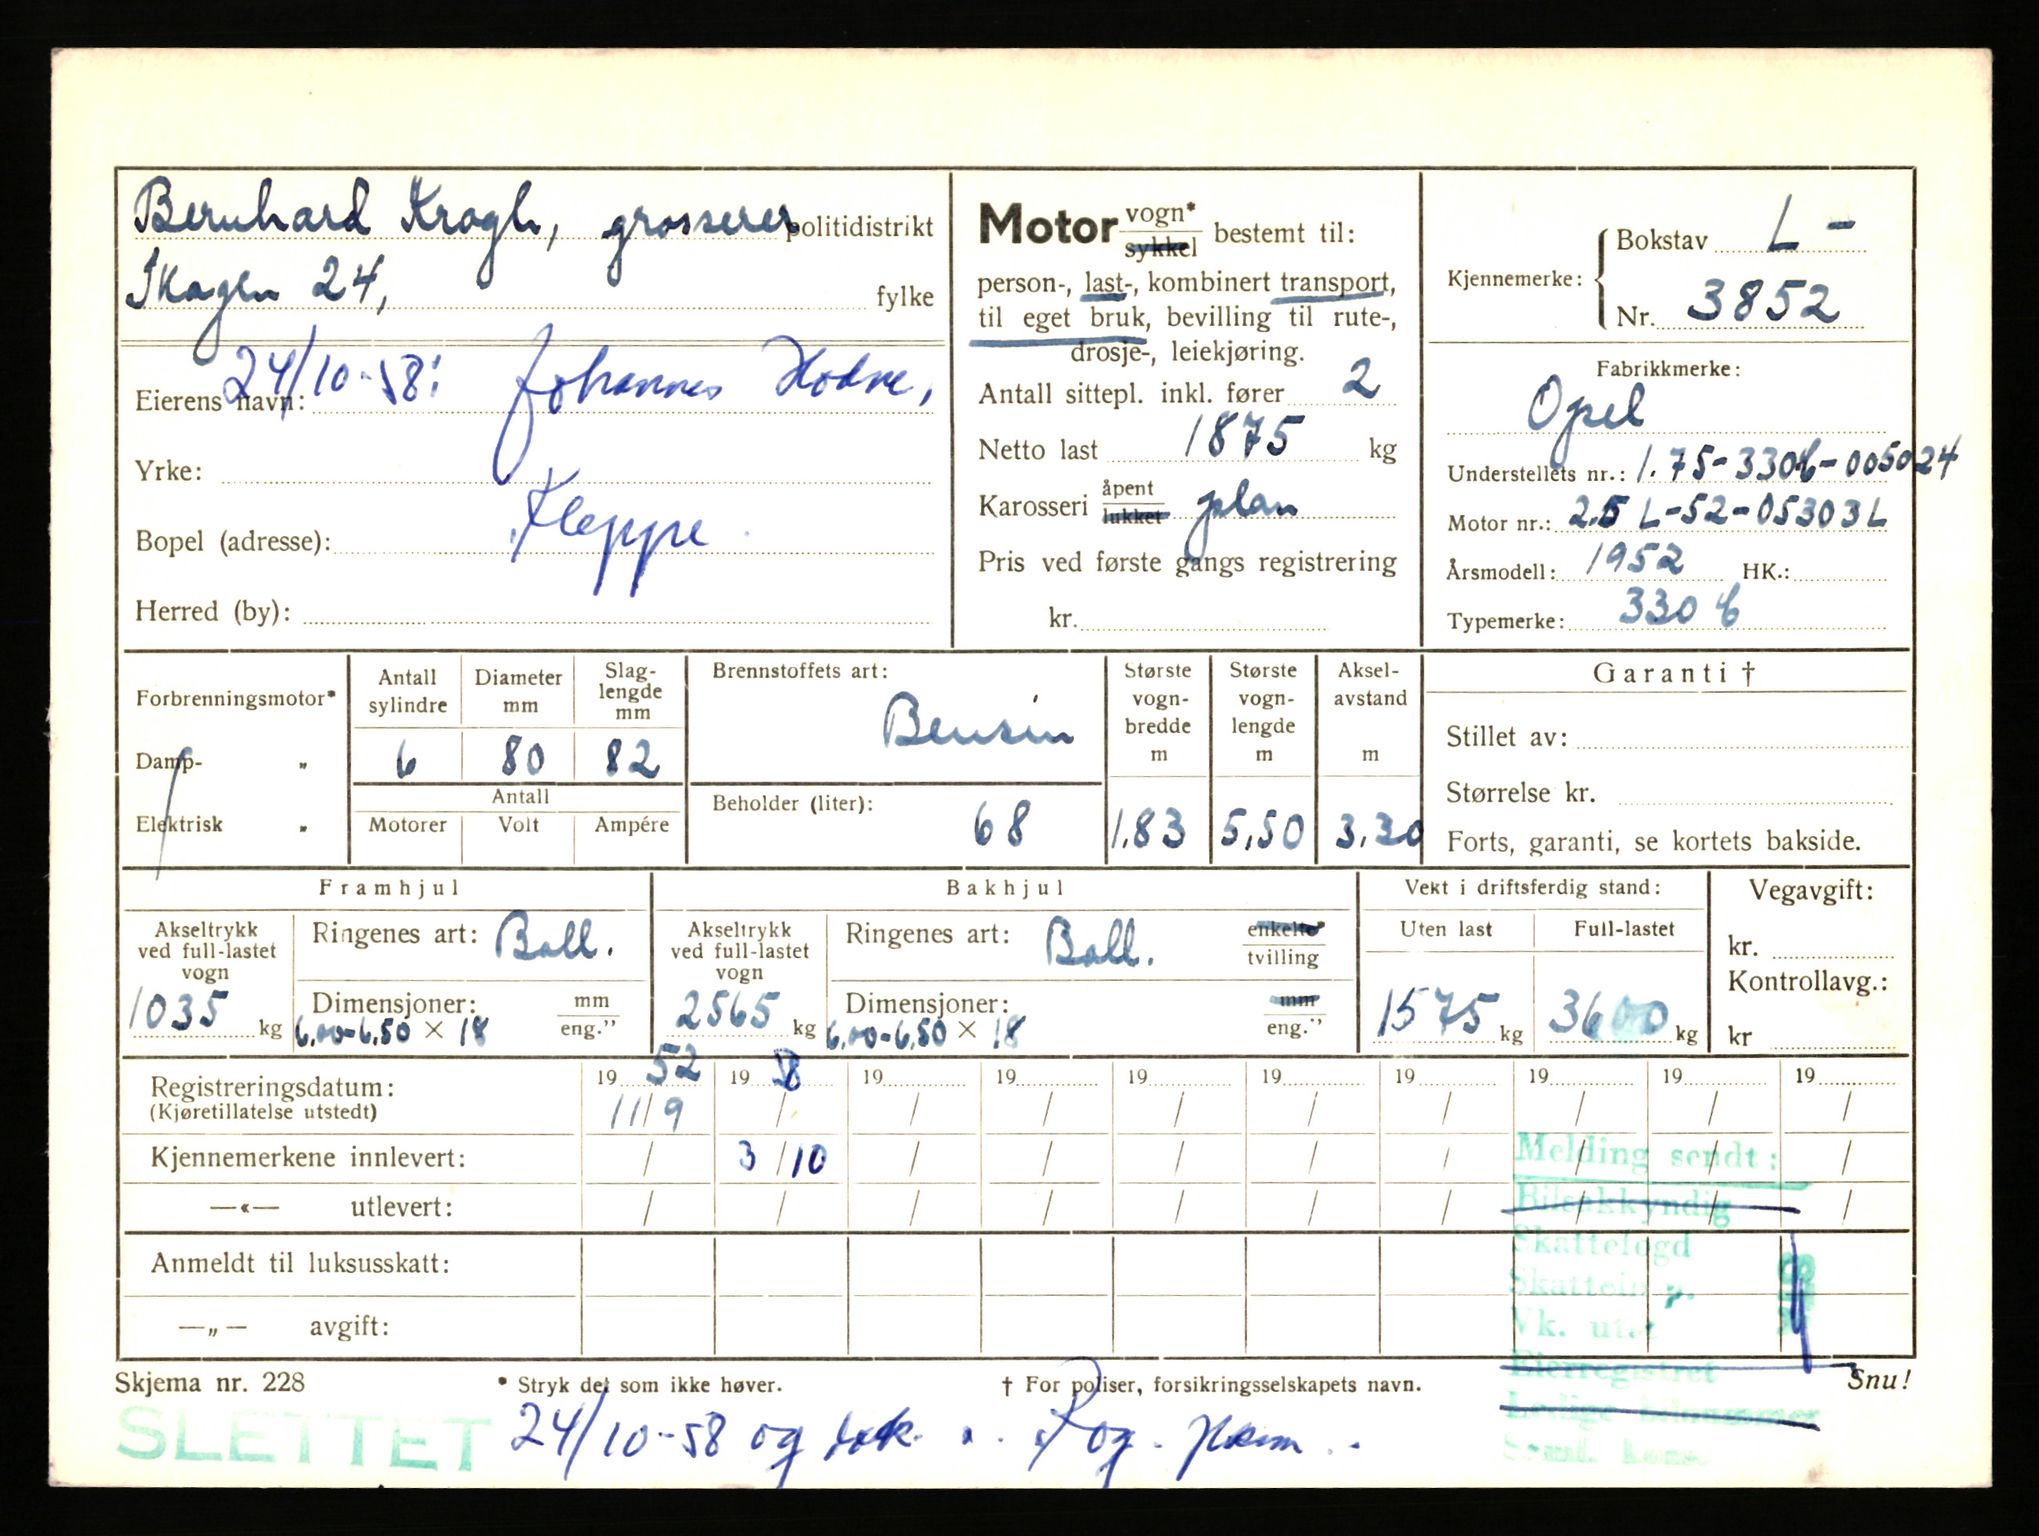 Bernhard Krogh, grosserer politidistrikt
Skagen 24, fylke
24/10-58: Johannes Hodne,
Eierens navn:
Yrke:
Kleppe.
Bopel (adresse):
Herred (by):
Motor vogn* sykkel bestemt til:
person-, last-, kombinert transport,
til eget bruk, bevilling til rute-,
drosje-, leiekjøring.
Antall sittepl. inkl. fører 2
Netto last 1875 kg
Karosseri åpent lukket plan
Pris ved første gangs registrering
kr.
Kjennemerke: Bokstav L-
Nr. 3852
Fabrikkmerke:
Opel
Understellets nr.: 1.75-330b-005024
Motor nr.: 2.5 L-52-05303L
Årsmodell: 1952 HK.:
Typemerke: 330 b
Forbrenningsmotor*
Damp- „
Elektrisk „
Antall sylindre Diameter mm Slag-lengde mm
6 80 82
Antall
Motorer Volt Ampére
Brennstoffets art:
Bensin
Beholder (liter): 68
Største vogn-bredde m 1.83
Største vogn-lengde m 5,50
Aksel-avstand m 3.30
Garanti †
Stillet av:
Størrelse kr.
Forts, garanti, se kortets bakside.
Framhjul
Akseltrykk ved full-lastet vogn 1035 kg
Ringenes art: Ball.
Dimensjoner: mm eng."
6,00-6,50 × 18
Bakhjul
Akseltrykk ved full-lastet vogn 2565 kg
Ringenes art: Ball. enkelte* tvilling
Dimensjoner: mm eng."
6,00-6,50 × 18
Vekt i driftsferdig stand:
Uten last Full-lastet
1575 kg 3600 kg
Vegavgift:
kr.
Kontrollavg.:
kr
Registreringsdatum: 19 52 19 58 19 19 19 19 19 19 19 19
(Kjøretillatelse utstedt) 11/9 / / / / / / / / /
Kjennemerkene innlevert: / 3/10 / / / / / / / /
—«— utlevert: / / / / / / / / / /
Anmeldt til luksusskatt:
—„— avgift:
Melding sendt:
Bilsakkyndig
Skattefogd
Eierregistret
Skjema nr. 228 * Stryk det som ikke høver. † For poliser, forsikringsselskapets navn. Snu!
SLETTET 24/10-58 og